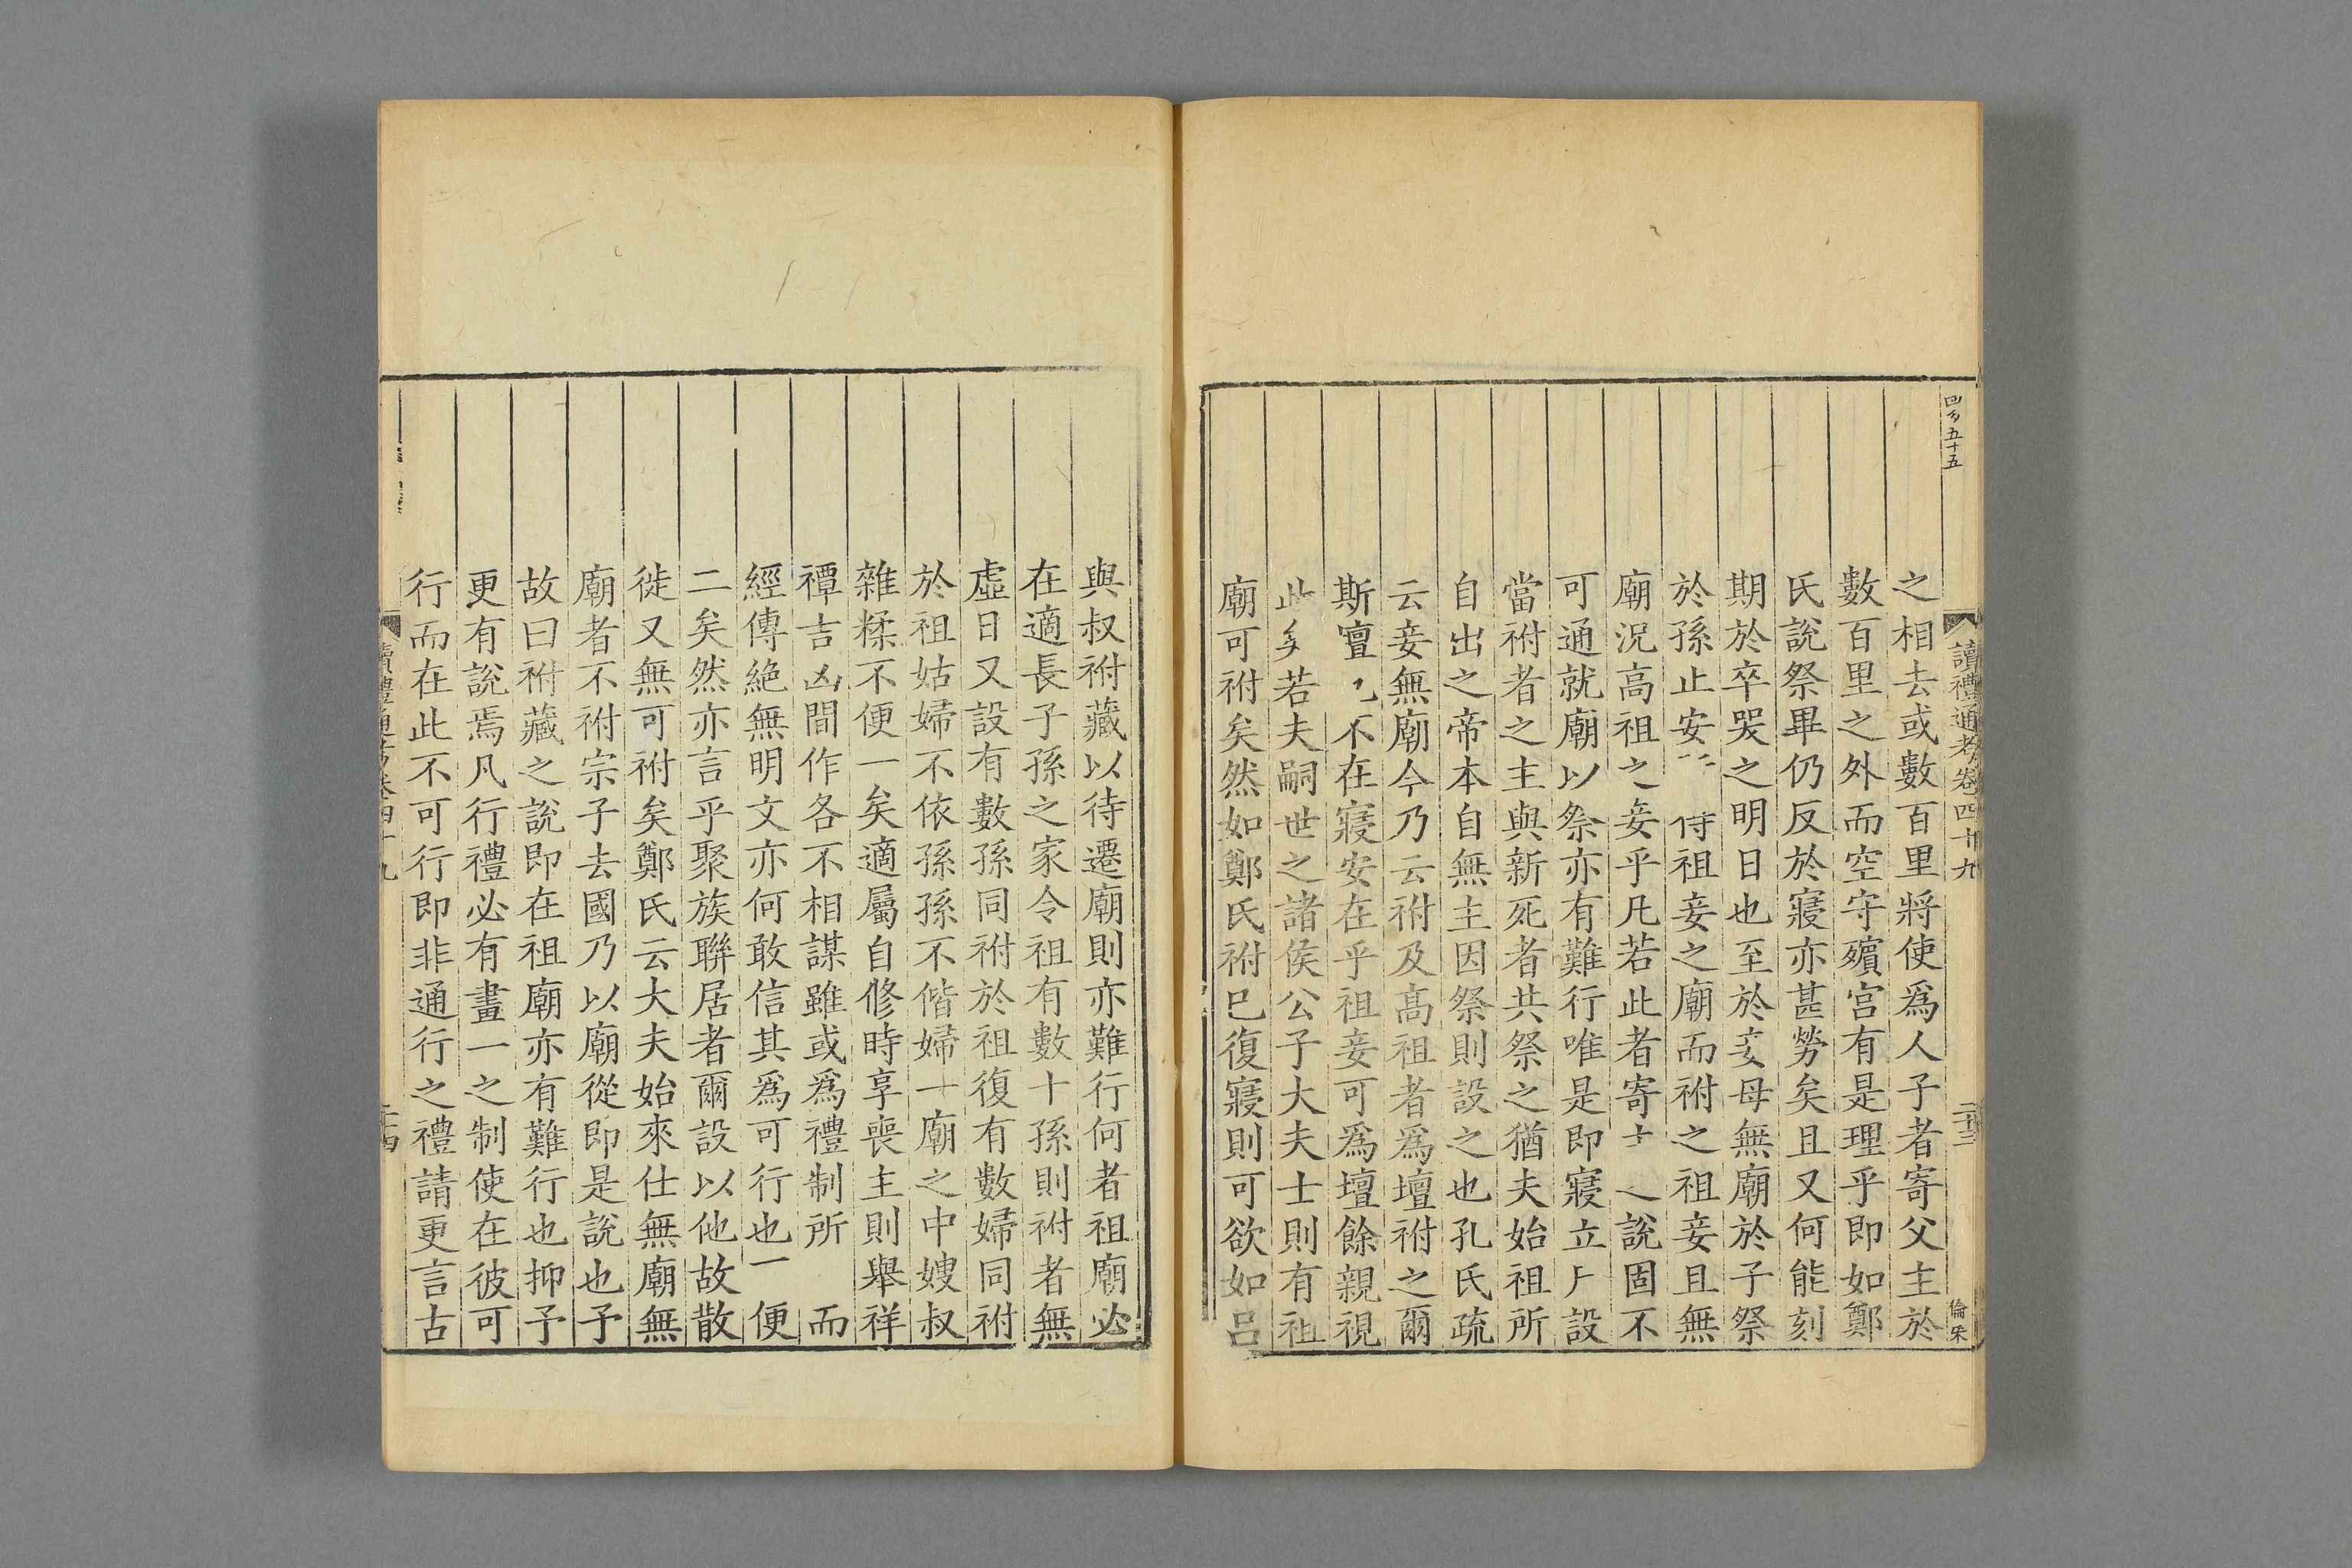 四百五十五
讀禮通考卷四十九
二十三
倫采
之相去或數百里將使爲人子者寄父主於
數百里之外而空守殯宮有是理乎即如鄭
氏說祭畢仍反於寢亦甚勞矣且又何能刻
期於卒哭之明日也至於妾母無廟於子祭
於孫止安侍祖妾之廟而祔之祖妾且無
廟況高祖之妾乎凡若此者寄說固不
可通就廟以祭亦有難行唯是即寢立設
當祔者之主與新死者共祭之猶夫始祖所
自出之帝本自無主因祭則設之也孔氏疏
云妾無廟今乃云祔及高祖者爲壇祔之爾
斯亶不在寢安在乎祖妾可爲壇餘親視
此矣若夫嗣世之諸侯公子大夫士則有祖
廟可祔矣然如鄭氏祔巳復寢則可欲如呂
與叔祔藏以待遷廟則亦難行何者祖廟必
在適長子孫之家令祖有數十孫則祔者無
虛日又設有數孫同祔於祖復有數婦同祔
於祖姑婦不依孫孫不偕婦一廟之中嫂叔
雜糅不便一矣適屬自修時享喪主則舉祥
禫吉凶間作各不相謀雖或爲禮制所而
經傳絕無明文亦何敢信其爲可行也一便
二矣然亦言乎聚族聯居者爾設以他故散
徙又無可祔矣鄭氏云大夫始來仕無廟無
廟者不祔宗子去國乃以廟從即是說也予
故曰祔藏之說即在祖廟亦有難行也抑予
更有說焉凡行禮必有畫一之制使在彼可
行而在此不可行即非通行之禮請更言古
讀禮通考卷四十九
二十四